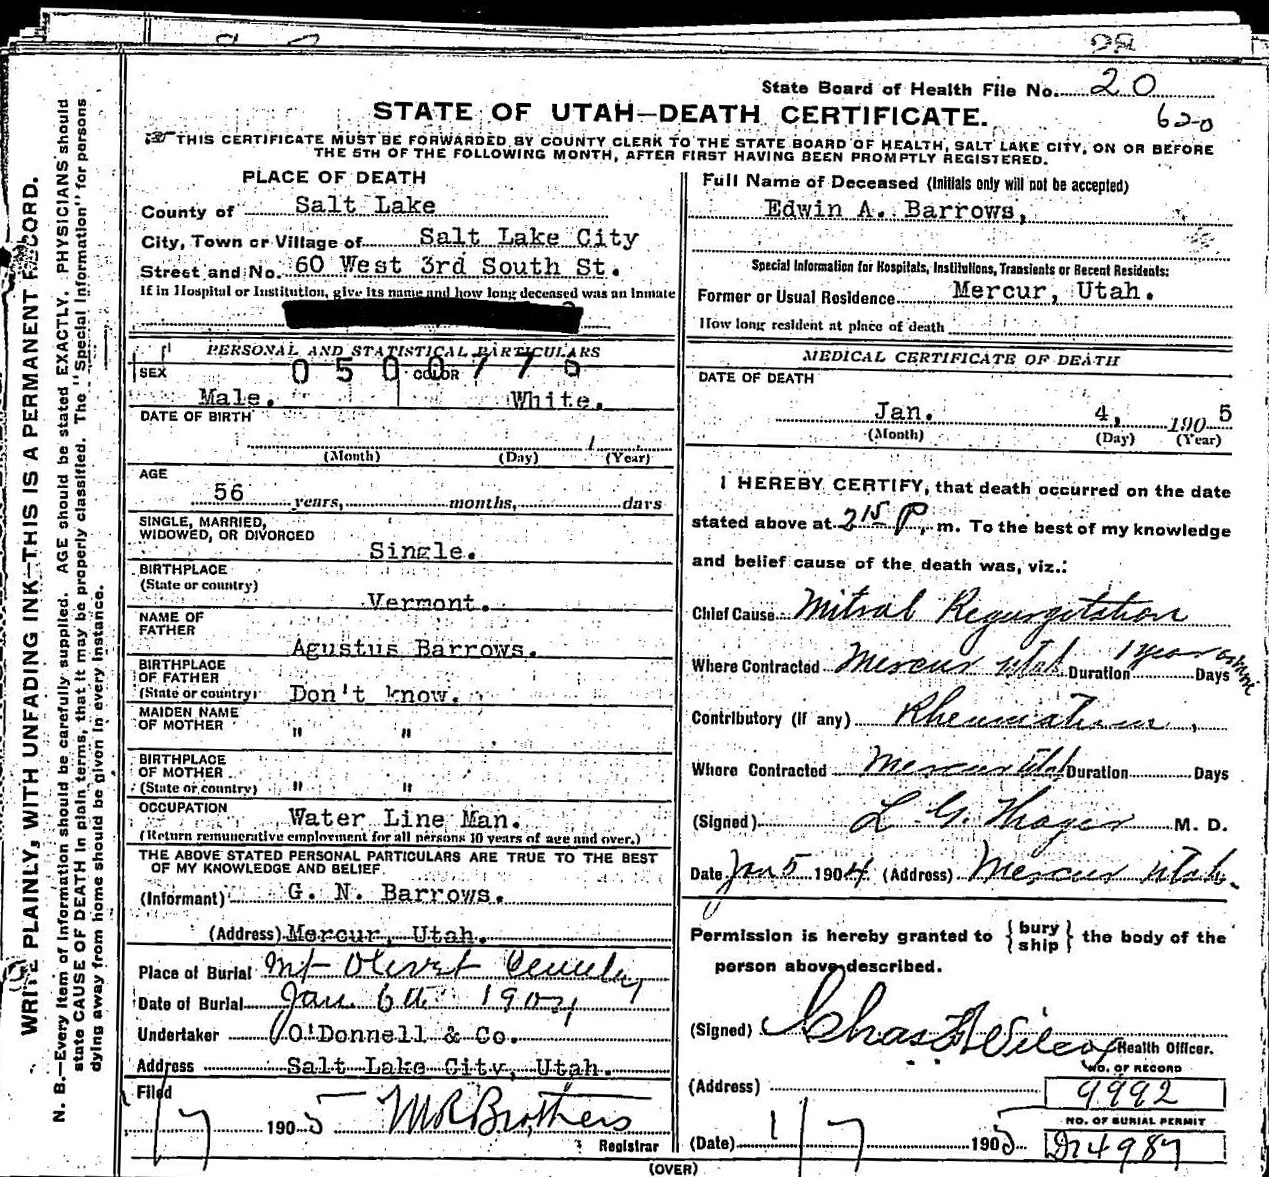 State Board of Health File No. 20
620
STATE OF UTAH—DEATH CERTIFICATE.
THIS CERTIFICATE MUST BE FORWARDED BY COUNTY CLERK TO THE STATE BOARD OF HEALTH, SALT LAKE CITY, ON OR BEFORE
THE 5TH OF THE FOLLOWING MONTH, AFTER FIRST HAVING BEEN PROMPTLY REGISTERED.
WRITE PLAINLY, WITH UNFADING INK—THIS IS A PERMANENT RECORD.
N. B.—Every item of information should be carefully supplied. AGE should be stated EXACTLY. PHYSICIANS should
state CAUSE OF DEATH in plain terms, that it may be properly classified. The "Special Information" for persons
dying away from home should be given in every instance.
PLACE OF DEATH
County of Salt Lake
City, Town or Village of Salt Lake City
Street and No. 60 West 3rd South St.
If in Hospital or Institution, give its name and how long deceased was an inmate
PERSONAL AND STATISTICAL PARTICULARS
0500776
SEX COLOR
Male. White.
DATE OF BIRTH
(Month) (Day) (Year)
AGE
56 years, months, days
SINGLE, MARRIED,
WIDOWED, OR DIVORCED
Single.
BIRTHPLACE
(State or country)
Vermont.
NAME OF
FATHER
Agustus Barrows.
BIRTHPLACE
OF FATHER
(State or country) Don't know.
MAIDEN NAME
OF MOTHER " "
BIRTHPLACE
OF MOTHER
(State or country) " "
OCCUPATION Water Line Man.
(Return remunerative employment for all persons 10 years of age and over.)
THE ABOVE STATED PERSONAL PARTICULARS ARE TRUE TO THE BEST
OF MY KNOWLEDGE AND BELIEF.
(Informant) G. N. Barrows.
(Address) Mercur, Utah.
Place of Burial Mt Olivet Cemetery
Date of Burial Jan 6th 1904
Undertaker O'Donnell & Co.
Address Salt Lake City, Utah.
Filed
1/7 1905 M R Brothers
Registrar
Full Name of Deceased (Initials only will not be accepted)
Edwin A. Barrows,
Special Information for Hospitals, Institutions, Transients or Recent Residents:
Former or Usual Residence Mercur, Utah.
How long resident at place of death
MEDICAL CERTIFICATE OF DEATH
DATE OF DEATH
Jan. 4, 1905
(Month) (Day) (Year)
I HEREBY CERTIFY, that death occurred on the date
stated above at 2 15 P, m. To the best of my knowledge
and belief cause of the death was, viz.:
Chief Cause Mitral Regurgitation
Where Contracted Mercur Utah Duration 1 year Days
Contributory (if any) Rheumatism
Where Contracted Mercur Utah Duration Days
(Signed) L G Thayer M. D.
Date Jan 5 1904 (Address) Mercur Utah.
Permission is hereby granted to { bury ship } the body of the
person above described.
(Signed) Chas F Wilcox Health Officer.
(Address)
NO. OF RECORD
9992
NO. OF BURIAL PERMIT
(Date) 1/7 1905 4987
(OVER)